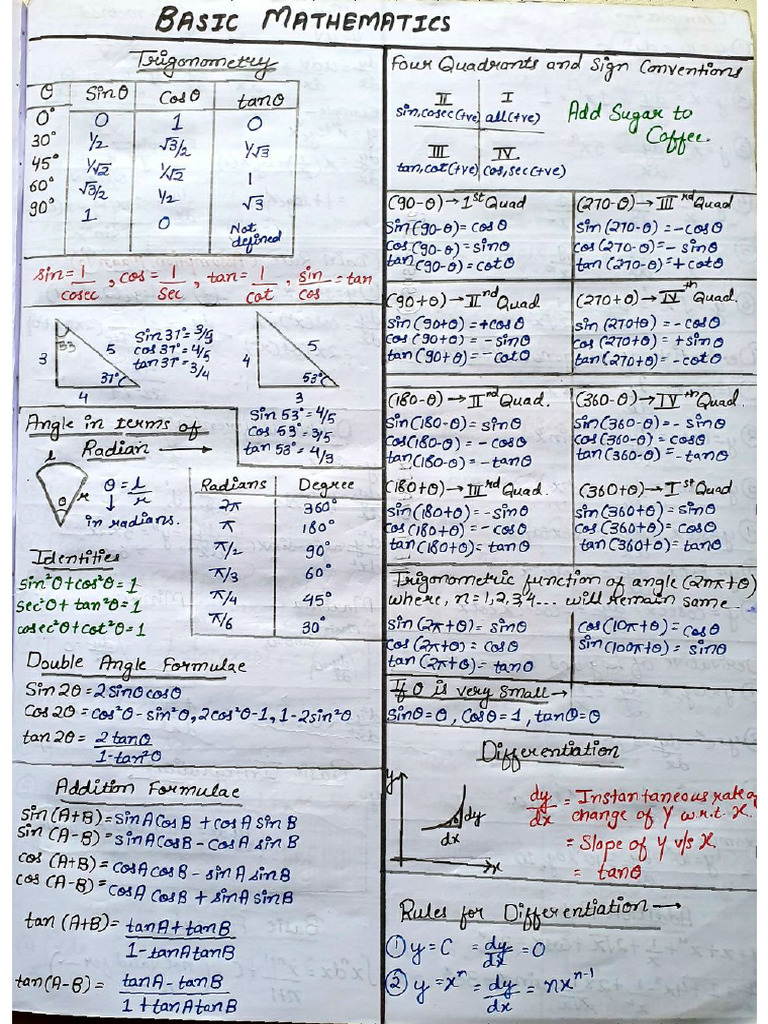 BASIC MATHEMATICS
Trigonometry
θ Sinθ Cosθ tanθ
0° 0 1 0
30° 1/2 √3/2 1/√3
45° 1/√2 1/√2 1
60° √3/2 1/2 √3
90° 1 0 Not defined
sin = 1/cosec , cos = 1/Sec , tan = 1/cot , sin/cos = tan
53
3 5
37°
4
Sin 37° = 3/5
cos 37° = 4/5
tan 37° = 3/4
4 5
53°
3
Sin 53° = 4/5
Cos 53° = 3/5
tan 53° = 4/3
Angle in terms of
Radian →
l
θ r
θ = l/r
↓
in radians.
Radians Degree
2π 360°
π 180°
π/2 90°
π/3 60°
π/4 45°
π/6 30°
Identities
sin²θ+cos²θ = 1
sec²θ + tan²θ = 1
cosec²θ+cot²θ = 1
Double Angle Formulae
Sin 2θ = 2 sinθ cosθ
Cos 2θ = cos²θ - sin²θ, 2cos²θ-1, 1-2sin²θ
tan 2θ = 2 tanθ / 1-tan²θ
Addition Formulae
sin (A+B) = sin A cos B + cos A sin B
sin (A-B) = sin A cos B - cos A sin B
cos (A+B) = cos A cos B - sin A sin B
cos (A-B) = cos A cos B + sin A sin B
tan (A+B) = tan A + tan B / 1-tan A tan B
tan (A-B) = tan A - tan B / 1 + tan A tan B
Four Quadrants and Sign Conventions
II I
sin, cosec (+ve) all (+ve)
III IV
tan, cot (+ve) cos, sec (+ve)
Add Sugar to
Coffee.
(90-θ) → 1st Quad
sin (90-θ) = cosθ
cos (90-θ) = sinθ
tan (90-θ) = cotθ
(270-θ) → III rd Quad
sin (270-θ) = -cosθ
cos (270-θ) = - sinθ
tan (270-θ) = + cotθ
(90+θ) → II nd Quad.
sin (90+θ) = +cosθ
cos (90+θ) = - sinθ
tan (90+θ) = - cotθ
(270+θ) → IV th Quad.
sin (270+θ) = - cosθ
cos (270+θ) = + sinθ
tan (270+θ) = - cotθ
(180-θ) → II nd Quad.
sin (180-θ) = sinθ
cos (180-θ) = - cosθ
tan (180-θ) = - tanθ
(360-θ) → IV th Quad.
sin (360-θ) = - sinθ
cos (360-θ) = cosθ
tan (360-θ) = - tanθ
(180+θ) → III rd Quad
sin (180+θ) = - sinθ
cos (180+θ) = - cosθ
tan (180+θ) = tanθ
(360+θ) → I st Quad
sin (360+θ) = sinθ
cos (360+θ) = cosθ
tan (360+θ) = tanθ
Trigonometric function of angle (2nπ+θ)
where, n = 1,2,3,4... will remain same.
sin (2π+θ) = sinθ
cos (2π+θ) = cosθ
tan (2π+θ) = tanθ
cos (10π+θ) = cosθ
sin (100π+θ) = sinθ
If θ is very small →
sinθ = θ , Cosθ = 1 , tanθ = θ
Differentiation
y
θ dy
dx
x
dy/dx = Instantaneous rate of
change of Y w.r.t. X.
= Slope of Y v/s X
= tanθ
Rules for Differentiation →
① y = C = dy/dx = 0
② y = xⁿ = dy/dx = nxⁿ⁻¹